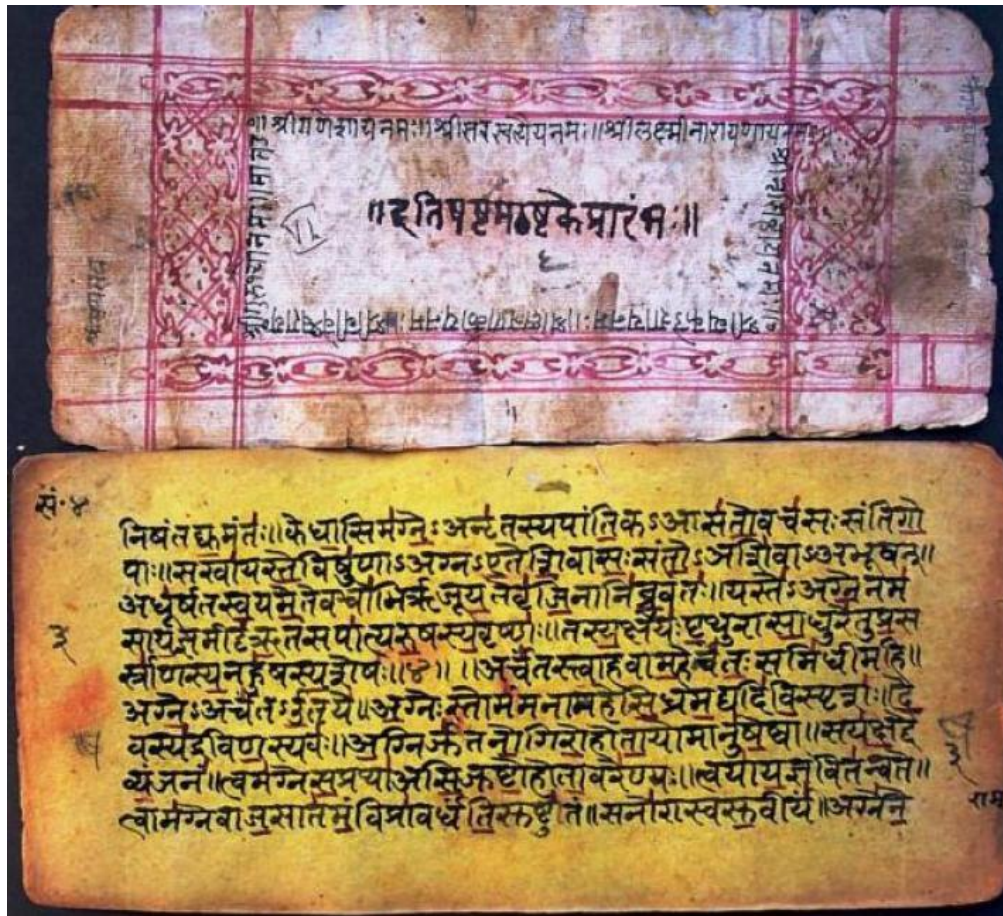 श्रीगणेशायनमः॥श्रीसरस्वत्यैनमः॥श्रीलक्ष्मीनारायणायनमः
॥इतिषष्टमअष्टकेप्रारंभः॥
६
सं॰४
निषंतद्युमंतः॥केधासिमग्नेऽअनृतस्यपांतिकऽआसतोवचसःसंतिगो
पाः॥सखायस्तेविषुणाऽअग्नऽएतेशिवासःसंतोऽअशिवाऽअभूवन्॥
अधूर्षतस्वयमेतेवचोभिर्ऋजूयतेवृजिनानिब्रुवंतः॥यस्तेऽअग्नेनम
सायज्ञमीट्टऽऋतंसपात्यरुषस्यवृष्णः॥तस्यक्षयःपृथुरासाधुरेतुप्रस
र्स्राणस्यनहुषस्यशेषः॥४॥ ॥अर्चंतस्त्वाहवामहेर्चंतःसमिधीमहि॥
अग्नेऽअर्चंतऽऊतये॥अग्नेःस्तोमंमनामहेसिध्रमद्यदिविस्पृशः॥दे
वस्यद्रविणस्यवः॥अग्निर्जुषतनोगिरोहोतायोमानुषेष्वा॥सयक्षद्दै
व्यंजनं॥त्वमग्नेसप्रथाअसिजुष्टोहोतावरेण्यः॥त्वयायज्ञंवितन्वते॥
त्वामग्नेवाजसातमंविप्रावर्धंतिसुष्टुतं॥सनोरास्वसुवीर्यं॥अग्नेने
३
३
राम